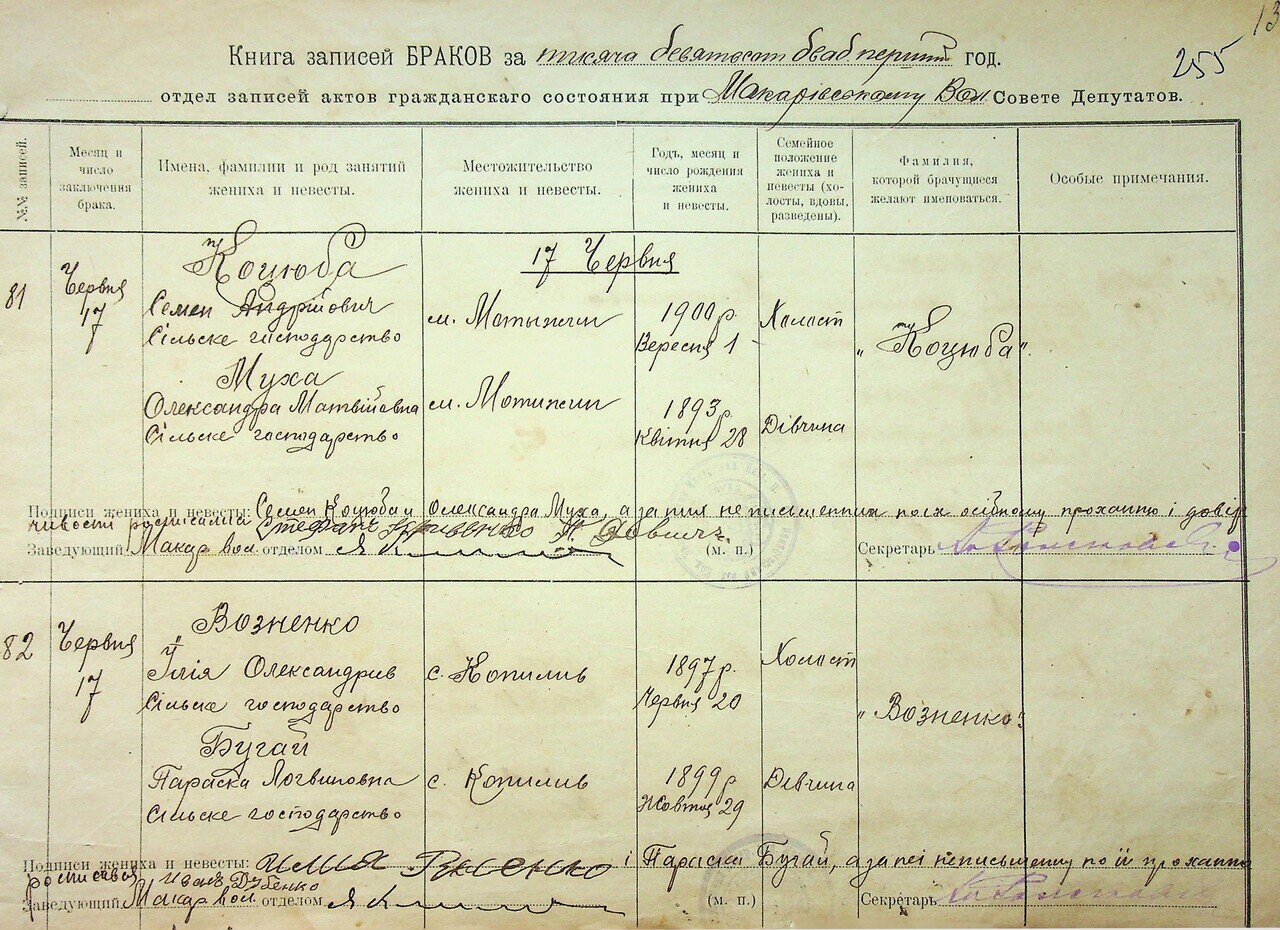 13
255
Книга записей БРАКОВ за тисяча девятьсот двадперший год.
отдел записей актов гражданскаго состояния при Макарівському Вол Совете Депутатов.
№№ записей.
Месяц и число заключения брака.
Имена, фамилии и род занятий жениха и невесты.
Местожительство жениха и невесты.
Годъ, месяц и число рождения жениха и невесты.
Семейное положение жениха и невесты (холосты, вдовы, разведены).
Фамилия, которой брачущиеся желают именоваться.
Особые примечания.
17 Червня
81
Червня 17
Коцюба
Семен Андрійович
Сільске господарство
м. Мотыжин
1900 р.
Вересня 1
Холост
„Коцюба".
Муха
Олександра Матвійовна
Сільске господарство
м. Мотижин
1893 р.
Квітня 28
Дівчина
Подписи жениха и невесты: Семен Коцюба и Олександра Муха, а за них неписьменних по їх осібному проханню і довір
чивости росписалися Стефан
Заведующий Макар вол. отделом
(м. п.)
Секретарь
82
Червня 17
Возненко
Ілія Олександрив
Сільске господарство
с. Копилив
1897 р.
Червня 20
Холост
„Возненко"
Бугай
Параска Логвиновна
Сільске господарство
с. Копилив
1899 р
Жовтня 29
Дівчина
Подписи жениха и невесты: и Параска Бугай, а за неї неписьменну по її проханню
росписався Иван Дубенко
Заведующий Макар вол. отделом
(м. п.)
Секретарь